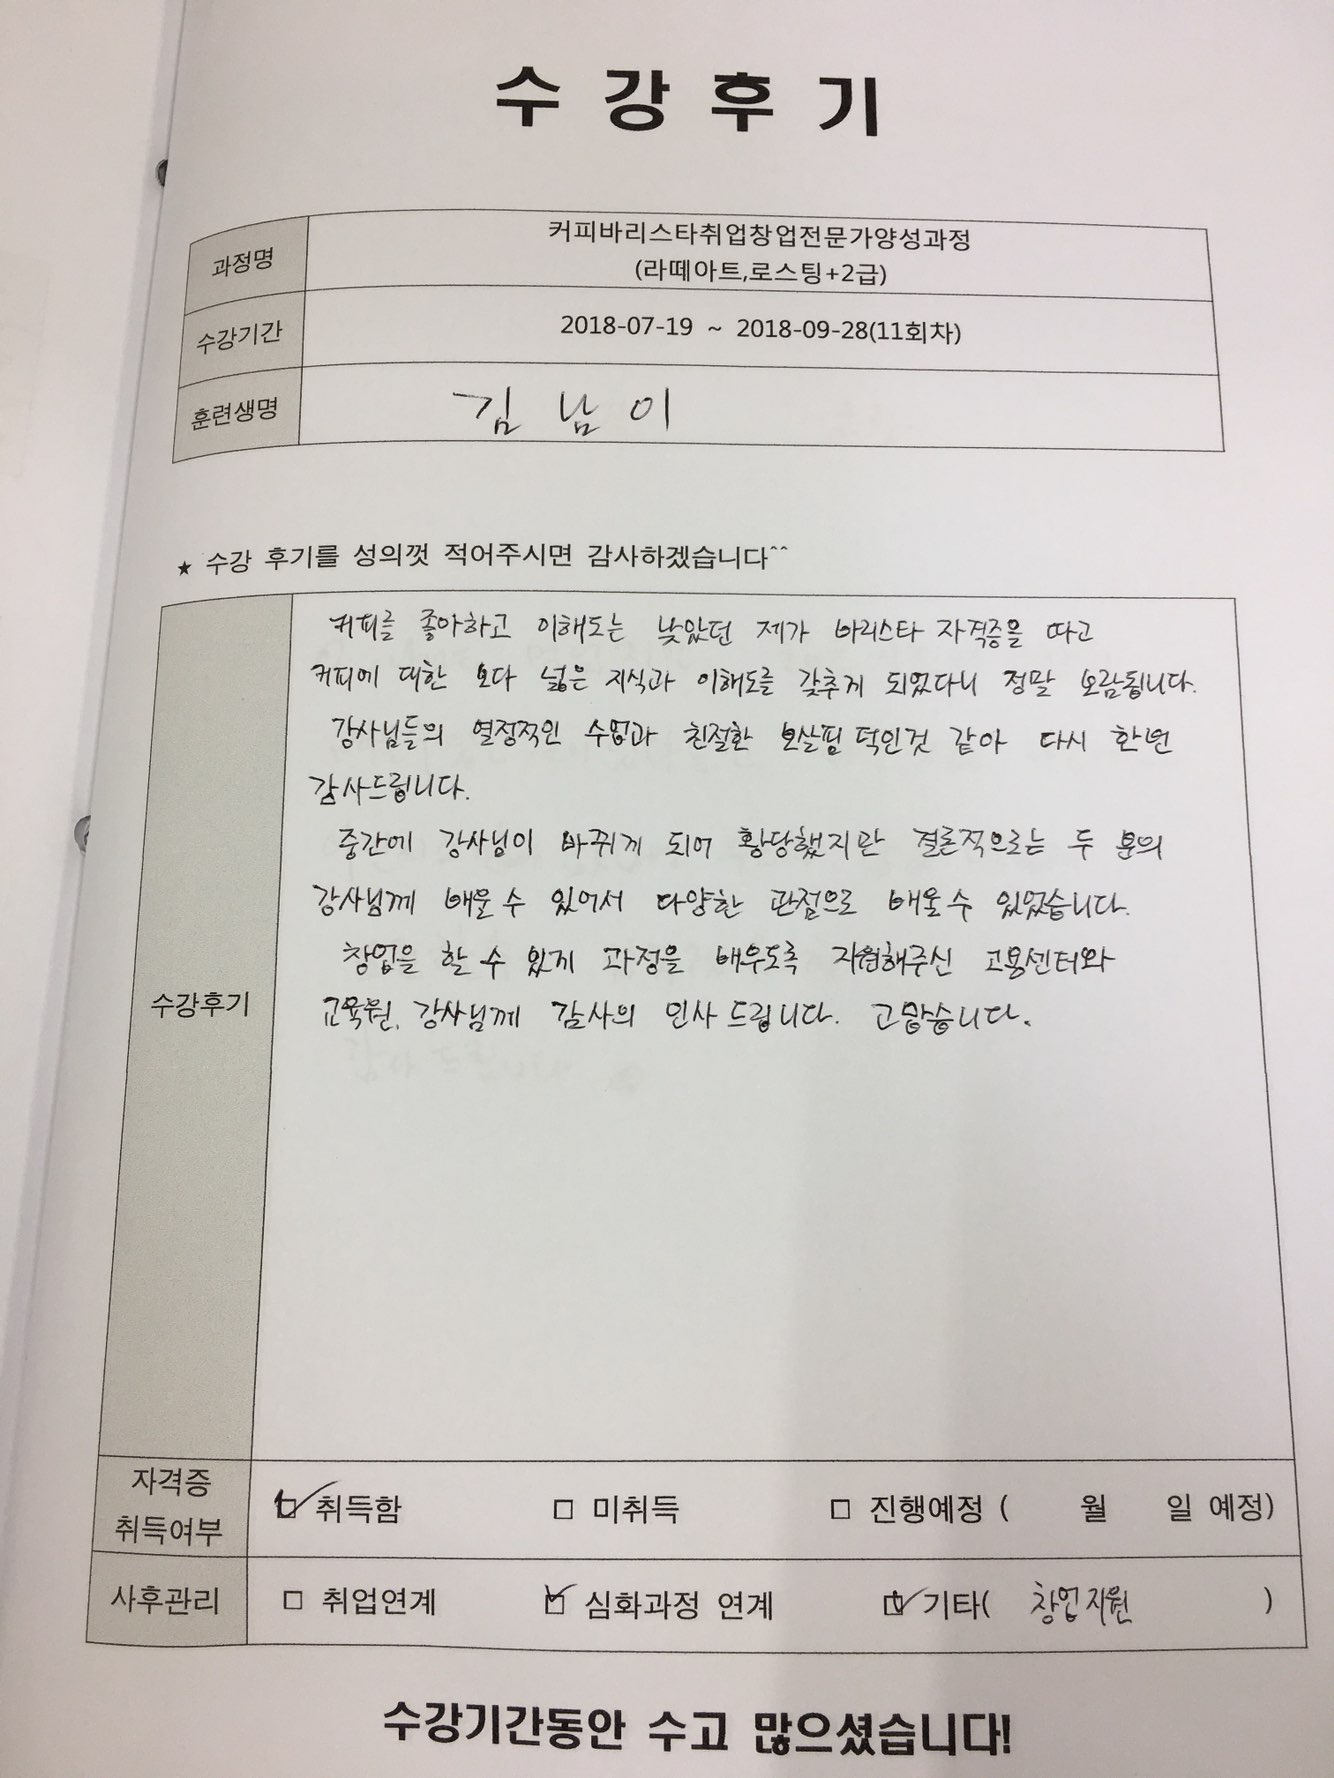 수 강 후 기
과정명
커피바리스타취업창업전문가양성과정
(라떼아트,로스팅+2급)
수강기간
2018-07-19 ~ 2018-09-28(11회차)
훈련생명
김 남 이
★ 수강 후기를 성의껏 적어주시면 감사하겠습니다^^
수강후기
커피를 좋아하고 이해도는 낮았던 제가 바리스타 자격증을 따고
커피에 대한 보다 넓은 지식과 이해도를 갖추게 되었다니 정말 보람됩니다.
강사님들의 열정적인 수업과 친절한 보살핌 덕인것 같아 다시 한번
감사드립니다.
중간에 강사님이 바뀌게 되어 황당했지만 결론적으로는 두 분의
강사님께 배울 수 있어서 다양한 관점으로 배울 수 있었습니다.
창업을 할 수 있게 과정을 배우도록 지원해주신 고용센터와
교육원, 강사님께 감사의 인사 드립니다. 고맙습니다.
자격증
취득여부
☑ 취득함 □ 미취득 □ 진행예정 ( 월 일 예정)
사후관리
□ 취업연계 ☑ 심화과정 연계 ☑ 기타( 창업지원 )
수강기간동안 수고 많으셨습니다!